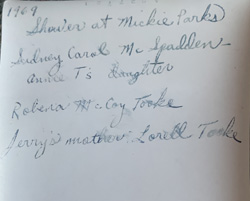 1969
Shower at Mickie Parks
Sidney Carol Mc Spadden -
Annie T's daughter
Robena McCoy Tooke
Jerry's mother Lorell Tooke